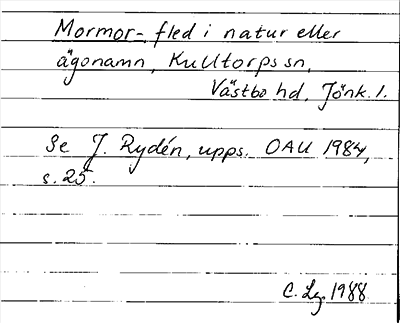 Mormor- fled i natur eller
ägonamn, Kulltorps sn,
Västbo hd, Jönk. l.
Se J. Rydén, upps. OAU 1984,
s. 25.
C. Lg. 1988